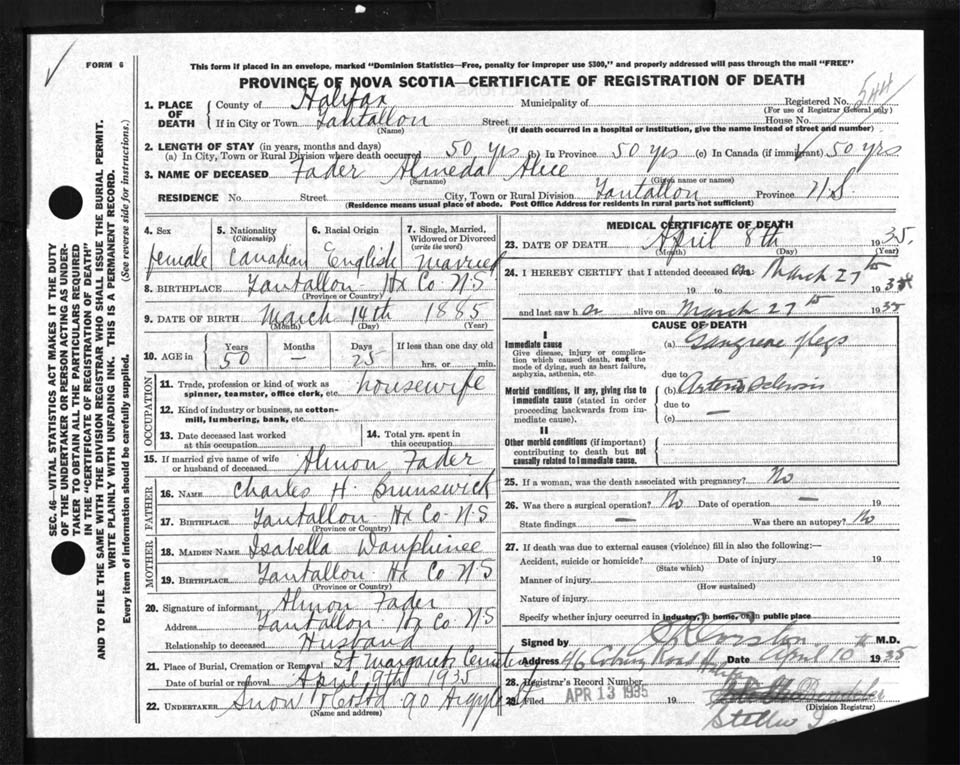 FORM 6
This form if placed in an envelope, marked "Dominion Statistics—Free, penalty for improper use $300," and properly addressed will pass through the mail "FREE"
PROVINCE OF NOVA SCOTIA—CERTIFICATE OF REGISTRATION OF DEATH
1. PLACE OF DEATH
County of Halifax Municipality of Registered No. 544
(For use of Registrar General only)
If in City or Town Tantallon Street House No.
(Name) (If death occurred in a hospital or institution, give the name instead of street and number)
2. LENGTH OF STAY (in years, months and days)
(a) In City, Town or Rural Division where death occurred 50 yrs (b) In Province 50 yrs (c) In Canada (if immigrant) 50 yrs
3. NAME OF DECEASED Fader Almeda Alice
(Surname) (Given name or names)
RESIDENCE No. Street City, Town or Rural Division Tantallon Province N.S.
(Residence means usual place of abode. Post Office Address for residents in rural parts not sufficient)
SEC. 46—VITAL STATISTICS ACT MAKES IT THE DUTY
OF THE UNDERTAKER OR PERSON ACTING AS UNDER-
TAKER TO OBTAIN ALL THE PARTICULARS REQUIRED
IN THE "CERTIFICATE OF REGISTRATION OF DEATH"
AND TO FILE THE SAME WITH THE DIVISION REGISTRAR WHO SHALL ISSUE THE BURIAL PERMIT.
WRITE PLAINLY WITH UNFADING INK. THIS IS A PERMANENT RECORD.
Every item of information should be carefully supplied. (See reverse side for instructions.)
4. Sex female
5. Nationality (Citizenship) Canadian
6. Racial Origin English
7. Single, Married, Widowed or Divorced (write the word) Married
8. BIRTHPLACE Tantallon Hx Co N.S
(Province or Country)
9. DATE OF BIRTH March 14th 1885
(Month) (Day) (Year)
10. AGE in Years 50 Months — Days 25 If less than one day old hrs. or min.
OCCUPATION
11. Trade, profession or kind of work as spinner, teamster, office clerk, etc. housewife
12. Kind of industry or business, as cotton-mill, lumbering, bank, etc.
13. Date deceased last worked at this occupation
14. Total yrs. spent in this occupation
15. If married give name of wife or husband of deceased Almon Fader
FATHER
16. NAME Charles H. Brunswick
17. BIRTHPLACE Tantallon Hx Co N.S
(Province or Country)
MOTHER
18. MAIDEN NAME Isabella Dauphinee
19. BIRTHPLACE Tantallon Hx Co N.S
(Province or Country)
20. Signature of informant Almon Fader
Address Tantallon Hx Co N.S
Relationship to deceased Husband
21. Place of Burial, Cremation or Removal St Margarets Cemetery
Date of burial or removal April 9th 1935
22. UNDERTAKER Snow & Co Ltd 90 Argyle St
(Name and address)
MEDICAL CERTIFICATE OF DEATH
23. DATE OF DEATH April 8th 1935.
(Month) (Day) (Year)
24. I HEREBY CERTIFY that I attended deceased on March 27th
19 to 1935
and last saw her alive on March 27th 1935
CAUSE OF DEATH
I
Immediate cause
Give disease, injury or complication which caused death, not the mode of dying, such as heart failure, asphyxia, asthenia, etc.
(a) Gangrene legs
due to
Morbid conditions, if any, giving rise to immediate cause (stated in order proceeding backwards from immediate cause).
(b) Arterio Sclerosis
due to —
(c)
II
Other morbid conditions (if important) contributing to death but not causally related to immediate cause.
25. If a woman, was the death associated with pregnancy? No
26. Was there a surgical operation? No Date of operation — 19
State findings — Was there an autopsy? No
27. If death was due to external causes (violence) fill in also the following:—
Accident, suicide or homicide? Date of injury 19
(State which)
Manner of injury
(How sustained)
Nature of injury
Specify whether injury occurred in industry, in home, or in public place
Signed by M.D.
Address 96 Coburg Road Halifax Date April 10th 1935
28. Registrar's Record Number
29. Filed APR 13 1935 19
(Division Registrar)
Stella